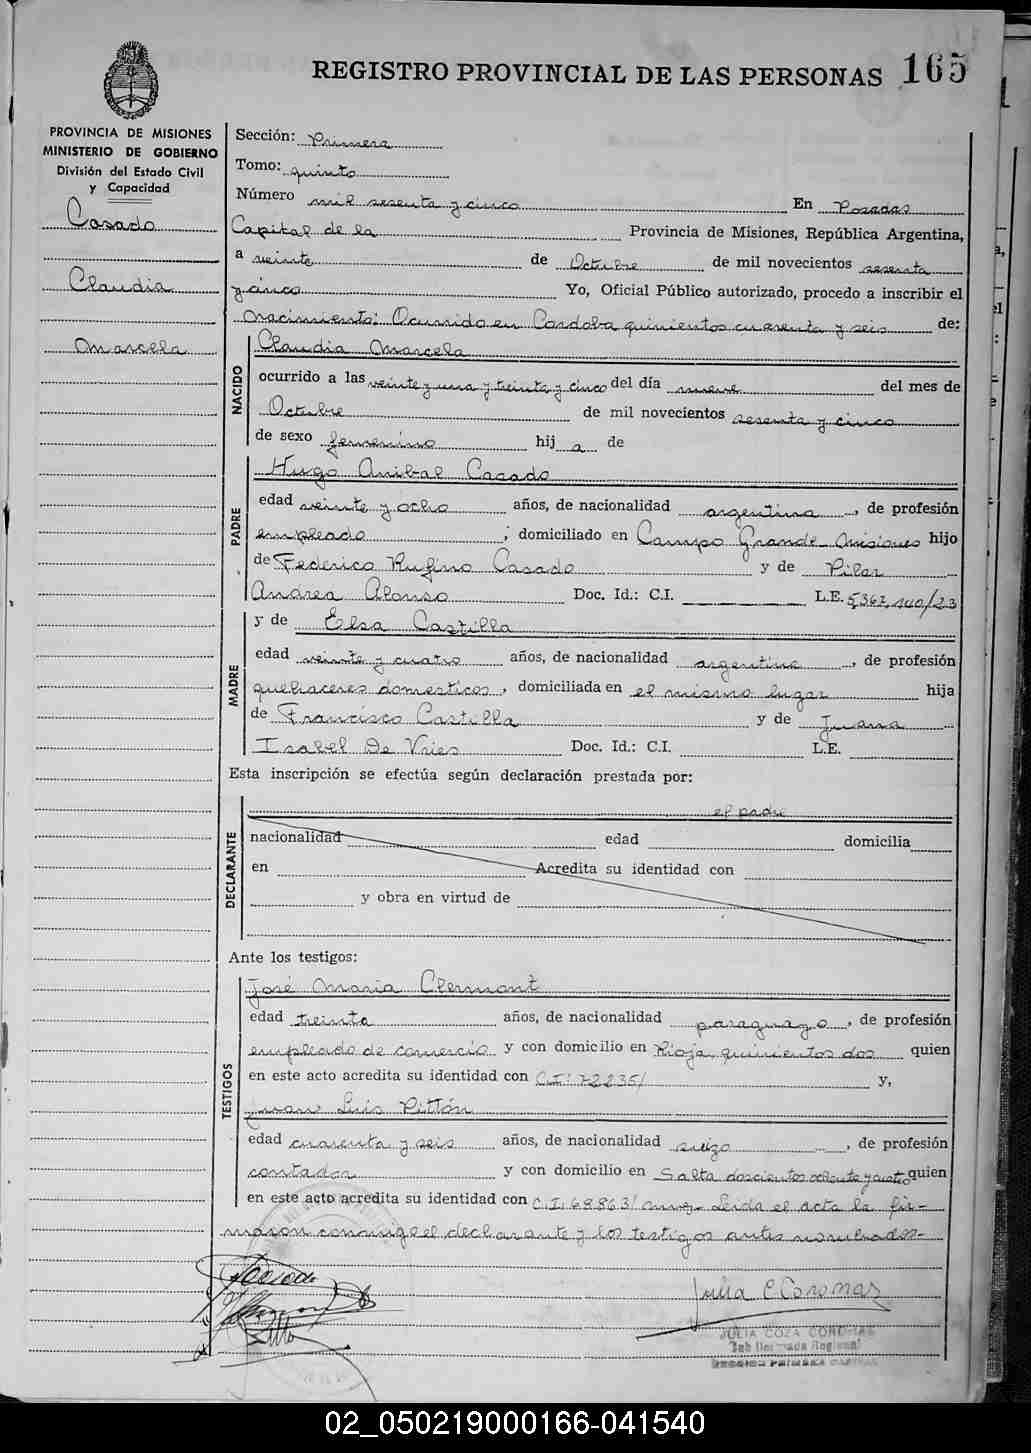 REGISTRO PROVINCIAL DE LAS PERSONAS 165
PROVINCIA DE MISIONES
MINISTERIO DE GOBIERNO
División del Estado Civil
y Capacidad
Casado
Claudia
Marcela
Sección: Primera
Tomo: quinto
Número mil sesenta y cinco En Posadas
Capital de la Provincia de Misiones, República Argentina,
a veinte de Octubre de mil novecientos sesenta
y cinco Yo, Oficial Público autorizado, procedo a inscribir el
nacimiento: Ocurrido en Cordoba quinientos cuarenta y seis de:
NACIDO
Claudia Marcela
ocurrido a las veinte y una y treinta y cinco del día nueve del mes de
Octubre de mil novecientos sesenta y cinco
de sexo femenino hij a de
PADRE
Hugo Anibal Casado
edad veinte y ocho años, de nacionalidad argentina, de profesión
empleado; domiciliado en Campo Grande Misiones hijo
de Federico Rufino Casado y de Pilar
Andrea Alonso Doc. Id.: C.I. L.E. 5.362.140/23
MADRE
y de Elsa Castilla
edad veinte y cuatro años, de nacionalidad argentina, de profesión
quehaceres domesticos, domiciliada en el mismo lugar hija
de Francisco Castilla y de Juana
Isabel De Vries Doc. Id.: C.I. L.E.
Esta inscripción se efectúa según declaración prestada por:
DECLARANTE
el padre
nacionalidad edad domicilia
en Acredita su identidad con
y obra en virtud de
Ante los testigos:
TESTIGOS
José Maria Clermont
edad treinta años, de nacionalidad paraguayo, de profesión
empleado de comercio y con domicilio en Rioja quinientos dos quien
en este acto acredita su identidad con C.I: 72235/ y,
Juan Luis Pittón
edad cuarenta y seis años, de nacionalidad suizo, de profesión
contador y con domicilio en Salta doscientos ochenta y cuatro quien
en este acto acredita su identidad con C.I: 69863/ Leida el acta la fir-
maron conmigo el declarante y los testigos antes nombrados-
Julia C Coronas
JULIA COZA CORONAS
02_050219000166-041540